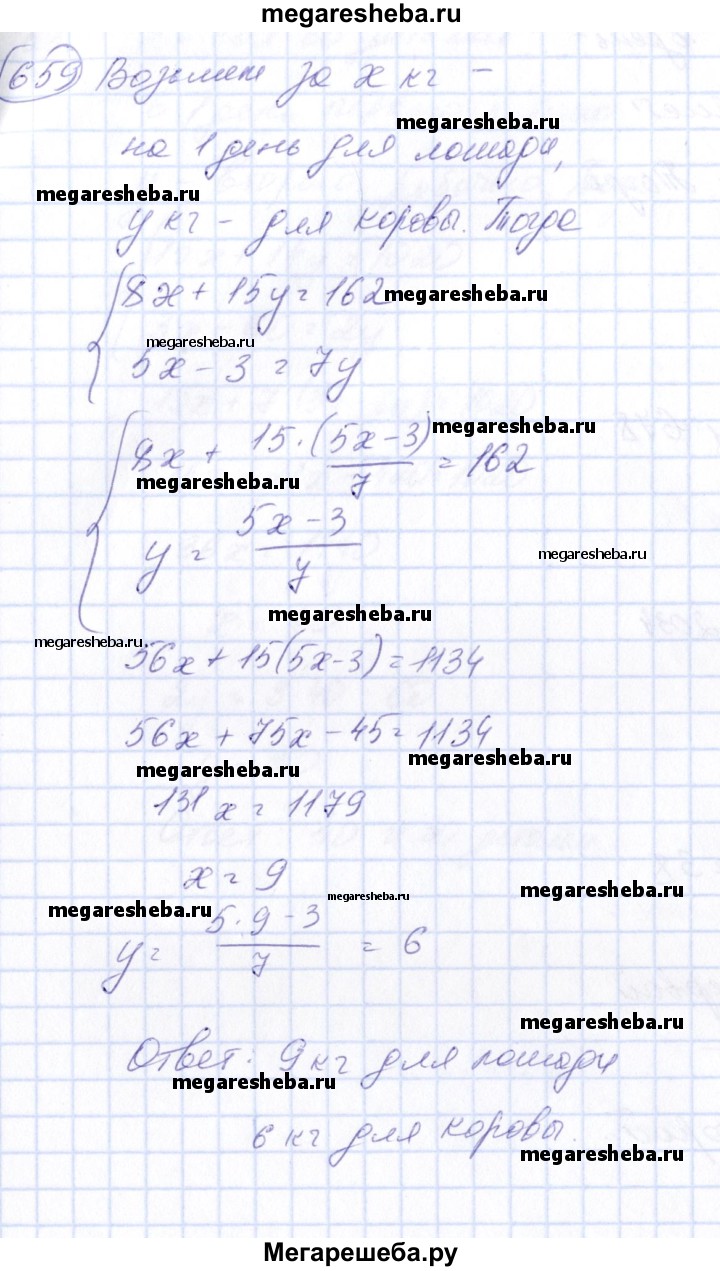 megaresheba.ru
659 Возьмем за x кг –
megaresheba.ru
на 1 день для лошади,
megaresheba.ru
y кг – для коровы. Тогда
8x + 15y = 162 megaresheba.ru
megaresheba.ru
5x – 3 = 7y
8x + 15·(5x–3)/7 = 162 megaresheba.ru
megaresheba.ru
y = 5x – 3/y
megaresheba.ru
megaresheba.ru
megaresheba.ru
56x + 15(5x-3) = 1134
56x + 75x – 45 = 1134
megaresheba.ru
megaresheba.ru
131x = 1179
x = 9
megaresheba.ru
megaresheba.ru
megaresheba.ru
y = 5·9 – 3/7 = 6
megaresheba.ru
Ответ: 9 кг для лошади
megaresheba.ru
6 кг для коровы.
megaresheba.ru
Мегарешеба.ру